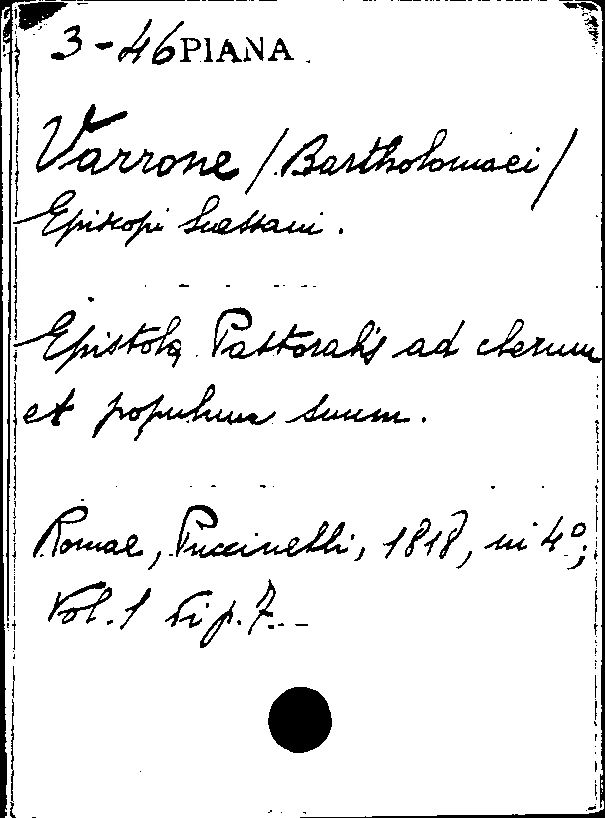 3-46 PIANA
Varrone / Bartholomaei /
Episcopi Suessani.
Epistola Pastoralis ad clerum
et populum suum.
Romae, Puccinelli, 1818, in 4º;
Vol. 1 di p. 7.